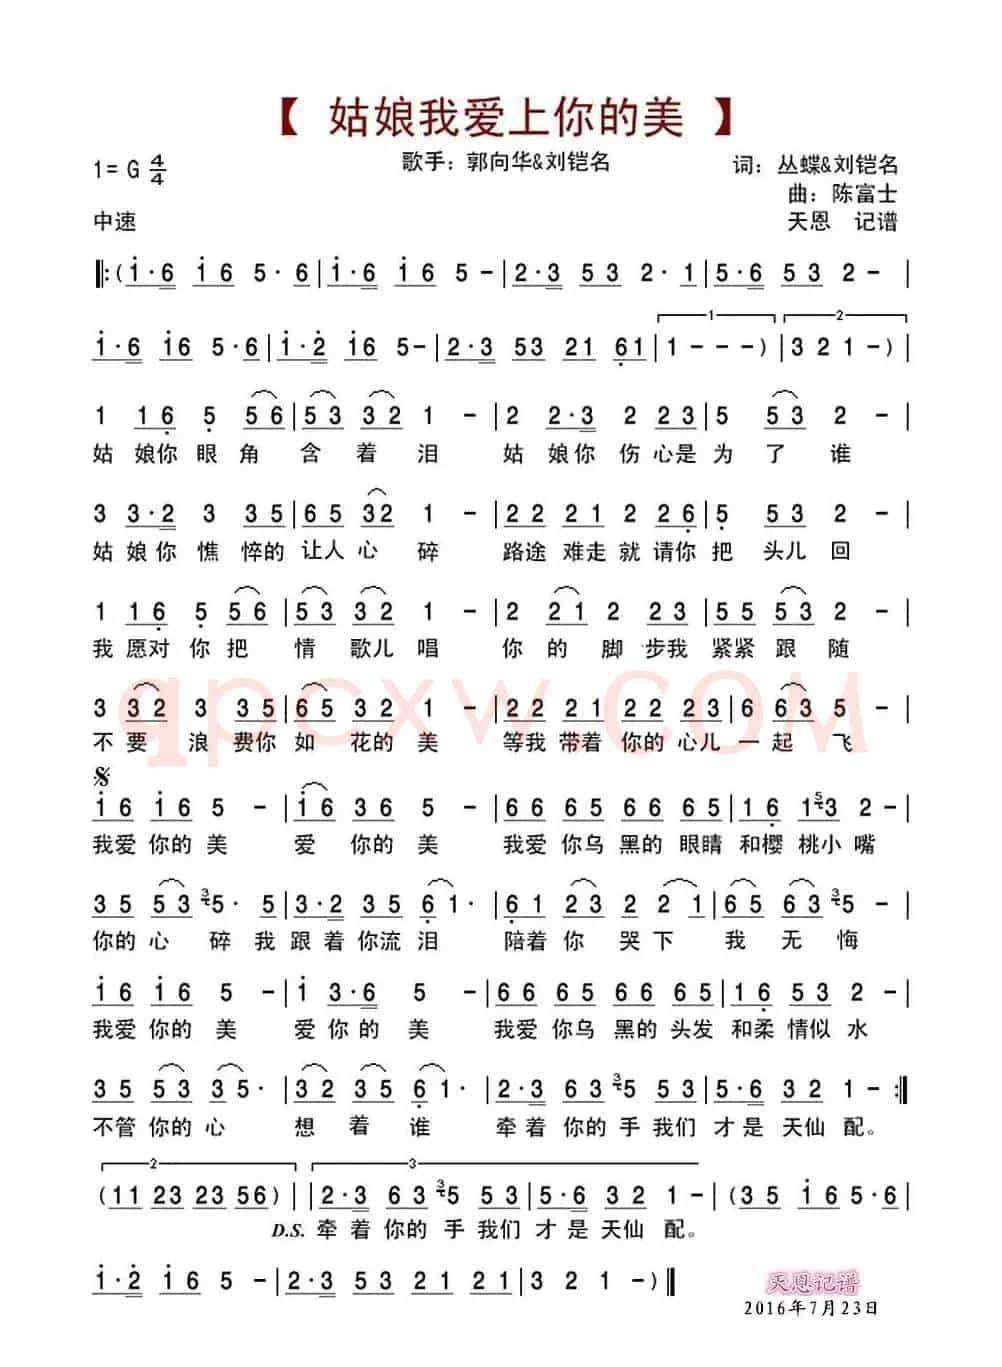 【 姑娘我爱上你的美 】
1= G 4/4
歌手：郭向华&刘铠名
词：丛蝶&刘铠名
曲：陈富士
中速
天恩 记谱
‖:(i·6 i6 5·6|i·6 i6 5-|2·3 53 2·1|5·6 53 2-|
1 2
i·6 i6 5·6|i·2 i6 5-|2·3 53 21 61|1---)|321-)|
1 16 5 56|53 32 1-|2 2·3 2 23|5 53 2-|
姑 娘你 眼 角 含 着 泪 姑 娘你 伤 心是 为 了 谁
3 3·2 3 35|65 32 1-|22 21 2 26|5 53 2-|
姑 娘你 憔 悴的 让人 心 碎 路途 难走 就 请你 把 头儿 回
1 16 5 56|53 32 1-|2 21 2 23|55 53 2-|
我 愿对 你 把 情 歌儿 唱 你 的 脚 步我 紧紧 跟 随
3 32 3 35|65 32 1-|22 21 22 23|6 63 5-|
不 要 浪 费你 如 花的 美 等我 带着 你的 心儿 一 起 飞
qpcxw.COM
i6 i6 5-|i6 36 5-|66 65 66 65|16 1 5 3 2-|
我爱 你的 美 爱 你的 美 我爱 你乌 黑的 眼睛 和樱 桃小 嘴
35 53 3 5· 5|3·2 35 61·|61 23 2 21|65 63 3 5-|
你的 心 碎 我 跟着 你流 泪 陪着 你 哭 下 我 无 悔
i6 i6 5-|i 3·6 5-|66 65 66 65|16 53 2-|
我爱 你的 美 爱 你 的 美 我爱 你乌 黑的 头发 和柔 情似 水
35 53 35·|32 35 61·|2·3 63 3 5 53|5·6 32 1-:‖
不管 你的 心 想 着 谁 牵着 你的 手 我们 才是 天仙 配。
2 3
(11 23 23 56)||2·3 63 3 5 53|5·6 32 1-|(35 i5 5·6|
D.S. 牵 着 你的 手 我们 才 是 天仙 配。
i·2 i6 5-|2·3 53 21 21|321-)‖
天恩记谱
2016年7月23日